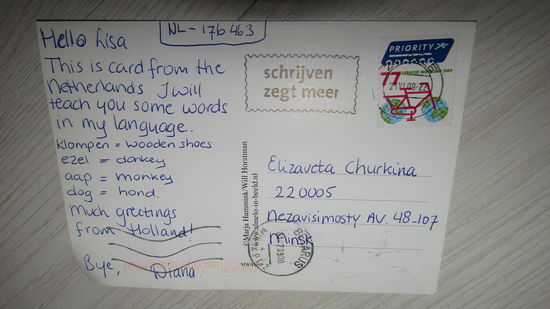 NL-176463
Hello Lisa
This is card from the
Netherlands. I will
teach you some words
in my language.
Klompen = wooden shoes
ezel = donkey
aap = monkey
dog = hond.
Much greetings
from Holland!
Bye, Diana
©Marja Hammink/Will Horstman
www.almelo-in-beeld.nl
schrijven
zegt meer
PRIORITY
77
Elizaveta Churkina
220005
Nezavisimosty AV. 48-107
Minsk